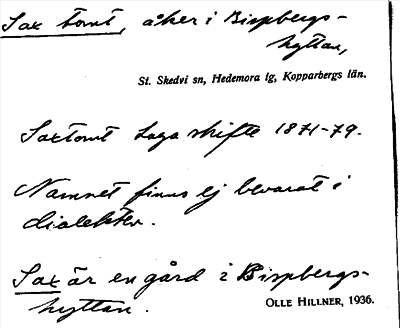 Sax tomt, åker i Bispbergs-
hyttan,
St. Skedvi sn, Hedemora tg, Kopparbergs län.
Saxtomt Laga skifte 1871-79.
Namnet finns ej bevarat i
dialekten.
Sax är en gård i Bispbergs-
hyttan.
OLLE HILLNER, 1936.